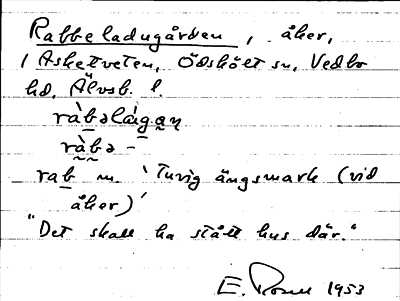 Rabbeladugården, åker,
i Asketveten, Ödskölt sn, Vedbo
hd, Älvsb. l.
ràbəláigaṇ
ràbə –
rab m. 'Turig ängsmark (vid
åker)'
"Det skall ha stått hus där."
E. 1953